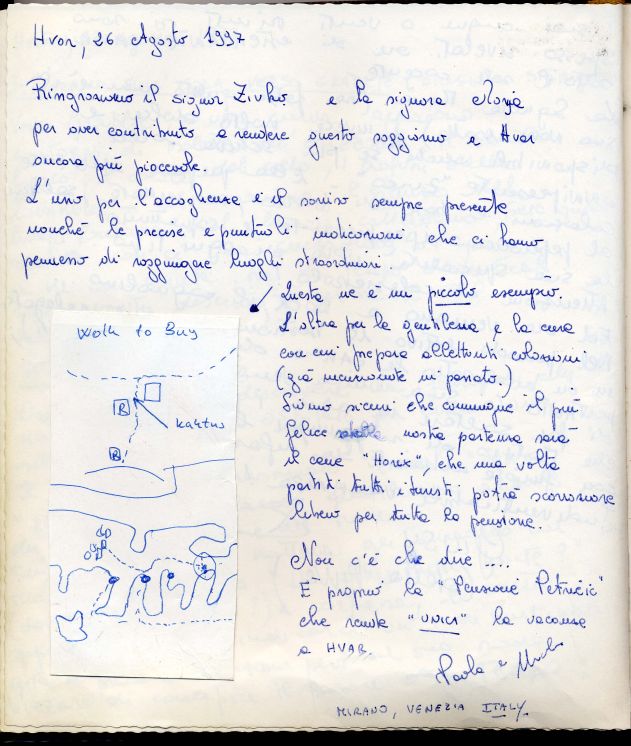 Hvar, 26 Agosto 1997
Ringraziamo il signor Zivko e la signora
per aver contribuito a rendere questo soggiorno a Hvar
ancora più piacevole.
L'uno per l'accoglienza e il sorriso sempre presente
nonché le precise e puntuali indicazioni che ci hanno
permesso di raggiungere luoghi straordinari.
Questa ne è un piccolo esempio.
L'altra per la gentilezza e la cura
con cui prepara allettanti colazioni
(già menzionate in passato.)
Siamo sicuri che comunque il più
felice nostra partenza sarà
il cane "Horix", che una volta
partiti tutti i turisti potrà scorrazzare
libero per tutta la pensione.
Non c'è che dire ....
È proprio la "Pensione Petričić"
che rende "UNICI" la vacanza
a HVAR.
Paola e
MIRANO, VENEZIA ITALY
Walk to Bay
B
B